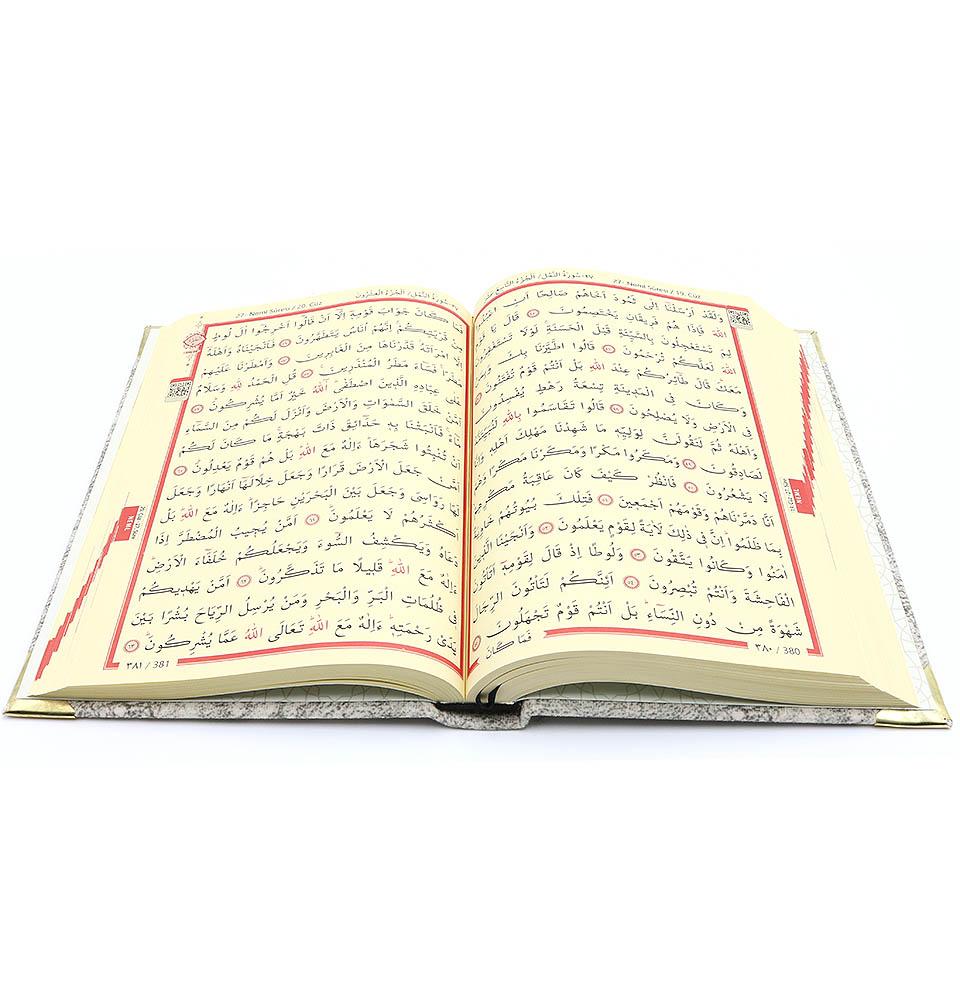 ٢٧-سُورَةُ النَّمْلِ / اَلْجُزْءُ التَّاسِعَ 27- Neml Sûresi / 19. Cüz
وَلَقَدْ اَرْسَلْنَٓا اِلٰى ثَمُودَ اَخَاهُمْ صَالِحًا اَنِ
اللّٰهَ فَاِذَا هُمْ فَرٖيقَانِ يَخْتَصِمُونَ ٤٥ قَالَ يَا
لِمَ تَسْتَعْجِلُونَ بِالسَّيِّئَةِ قَبْلَ الْحَسَنَةِ لَوْلَا
اللّٰهَ لَعَلَّكُمْ تُرْحَمُونَ ٤٦ قَالُوا اطَّيَّرْنَا
مَعَكَ قَالَ طَٓائِرُكُمْ عِنْدَ اللّٰهِ بَلْ اَنْتُمْ قَوْمٌ تُفْتَنُونَ
وَكَانَ فِى الْمَدٖينَةِ تِسْعَةُ رَهْطٍ يُفْسِدُونَ
فِى الْاَرْضِ وَلَا يُصْلِحُونَ ٤٨ قَالُوا تَقَاسَمُوا بِاللّٰهِ
وَاَهْلَهُ ثُمَّ لَنَقُولَنَّ لِوَلِيِّهٖ مَا شَهِدْنَا مَهْلِكَ اَهْلِهٖ
لَصَادِقُونَ ٤٩ وَمَكَرُوا مَكْرًا وَمَكَرْنَا مَكْرًا
لَا يَشْعُرُونَ ٥٠ فَانْظُرْ كَيْفَ كَانَ عَاقِبَةُ
اَنَّا دَمَّرْنَاهُمْ وَقَوْمَهُمْ اَجْمَعٖينَ ٥١ فَتِلْكَ بُيُوتُهُمْ
بِمَا ظَلَمُوا اِنَّ فٖى ذٰلِكَ لَاٰيَةً لِقَوْمٍ يَعْلَمُونَ ٥٢ وَاَنْجَيْنَا
اٰمَنُوا وَكَانُوا يَتَّقُونَ ٥٣ وَلُوطًا اِذْ قَالَ لِقَوْمِهٖٓ
الْفَاحِشَةَ وَاَنْتُمْ تُبْصِرُونَ ٥٤ اَئِنَّكُمْ لَتَاْتُونَ
شَهْوَةً مِنْ دُونِ النِّسَٓاءِ بَلْ اَنْتُمْ قَوْمٌ تَجْهَلُونَ
فَمَا كَانَ
٣٨٠ / 380
MENÜ
٢٧-سُورَةُ النَّمْلِ / اَلْجُزْءُ الْعِشْرُونَ 27- Neml Sûresi / 20. Cüz
فَمَا كَانَ جَوَابَ قَوْمِهٖٓ اِلَّٓا اَنْ قَالُٓوا اَخْرِجُٓوا اٰلَ لُوطٍ
مِنْ قَرْيَتِكُمْ اِنَّهُمْ اُنَاسٌ يَتَطَهَّرُونَ ٥٦ فَاَنْجَيْنَاهُ وَاَهْلَهُٓ
اِلَّا امْرَاَتَهُ قَدَّرْنَاهَا مِنَ الْغَابِرٖينَ ٥٧ وَاَمْطَرْنَا عَلَيْهِمْ
مَطَرًا فَسَٓاءَ مَطَرُ الْمُنْذَرٖينَ ٥٨ قُلِ الْحَمْدُ لِلّٰهِ وَسَلَامٌ
عَلٰى عِبَادِهِ الَّذٖينَ اصْطَفٰى آٰللّٰهُ خَيْرٌ اَمَّا يُشْرِكُونَ ٥٩
اَمَّنْ خَلَقَ السَّمٰوَاتِ وَالْاَرْضَ وَاَنْزَلَ لَكُمْ مِنَ السَّمَٓاءِ
مَٓاءً فَاَنْبَتْنَا بِهٖ حَدَٓائِقَ ذَاتَ بَهْجَةٍ مَا كَانَ لَكُمْ
اَنْ تُنْبِتُوا شَجَرَهَا ءَاِلٰهٌ مَعَ اللّٰهِ بَلْ هُمْ قَوْمٌ يَعْدِلُونَ ٦٠
اَمَّنْ جَعَلَ الْاَرْضَ قَرَارًا وَجَعَلَ خِلَالَهَٓا اَنْهَارًا وَجَعَلَ
لَهَا رَوَاسِىَ وَجَعَلَ بَيْنَ الْبَحْرَيْنِ حَاجِزًا ءَاِلٰهٌ مَعَ اللّٰهِ بَلْ
اَكْثَرُهُمْ لَا يَعْلَمُونَ ٦١ اَمَّنْ يُجٖيبُ الْمُضْطَرَّ اِذَا
دَعَاهُ وَيَكْشِفُ السُّٓوءَ وَيَجْعَلُكُمْ خُلَفَٓاءَ الْاَرْضِ
ءَاِلٰهٌ مَعَ اللّٰهِ قَلٖيلًا مَا تَذَكَّرُونَ ٦٢ اَمَّنْ يَهْدٖيكُمْ
فٖى ظُلُمَاتِ الْبَرِّ وَالْبَحْرِ وَمَنْ يُرْسِلُ الرِّيَاحَ بُشْرًا بَيْنَ
يَدَىْ رَحْمَتِهٖ ءَاِلٰهٌ مَعَ اللّٰهِ تَعَالَى اللّٰهُ عَمَّا يُشْرِكُونَ ٦٣
٣٨١ / 381
MENÜ